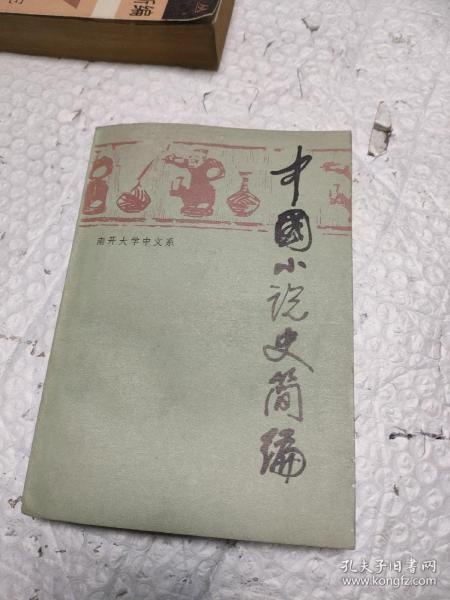 丛
新编
中國小说史简编
南开大学中文系
孔夫子旧书网
www.kongfz.com